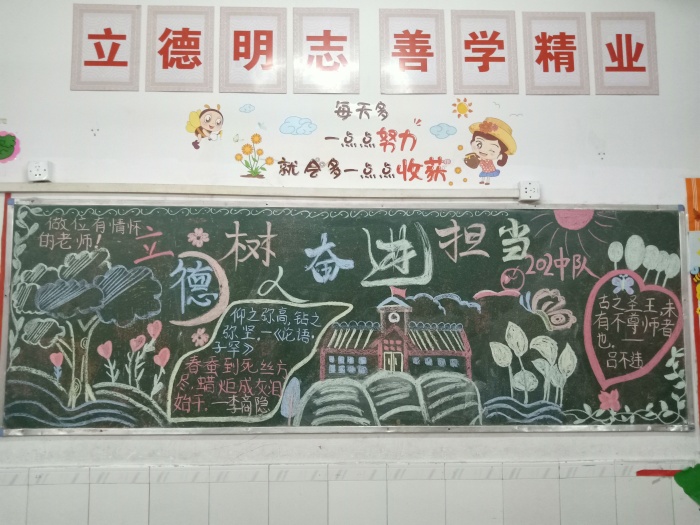 立 德 明 志 善 学 精 业
每天多
一点点努力
就会多一点点收获
做位有情怀
的老师!
立德树人奋进担当
202中队
仰之弥高,钻之
弥坚.—《论语·
子罕》
春蚕到死丝方
尽,蜡炬成灰泪
始干.—李商隐
古之圣王未
有不尊师者
也.—
吕不韦